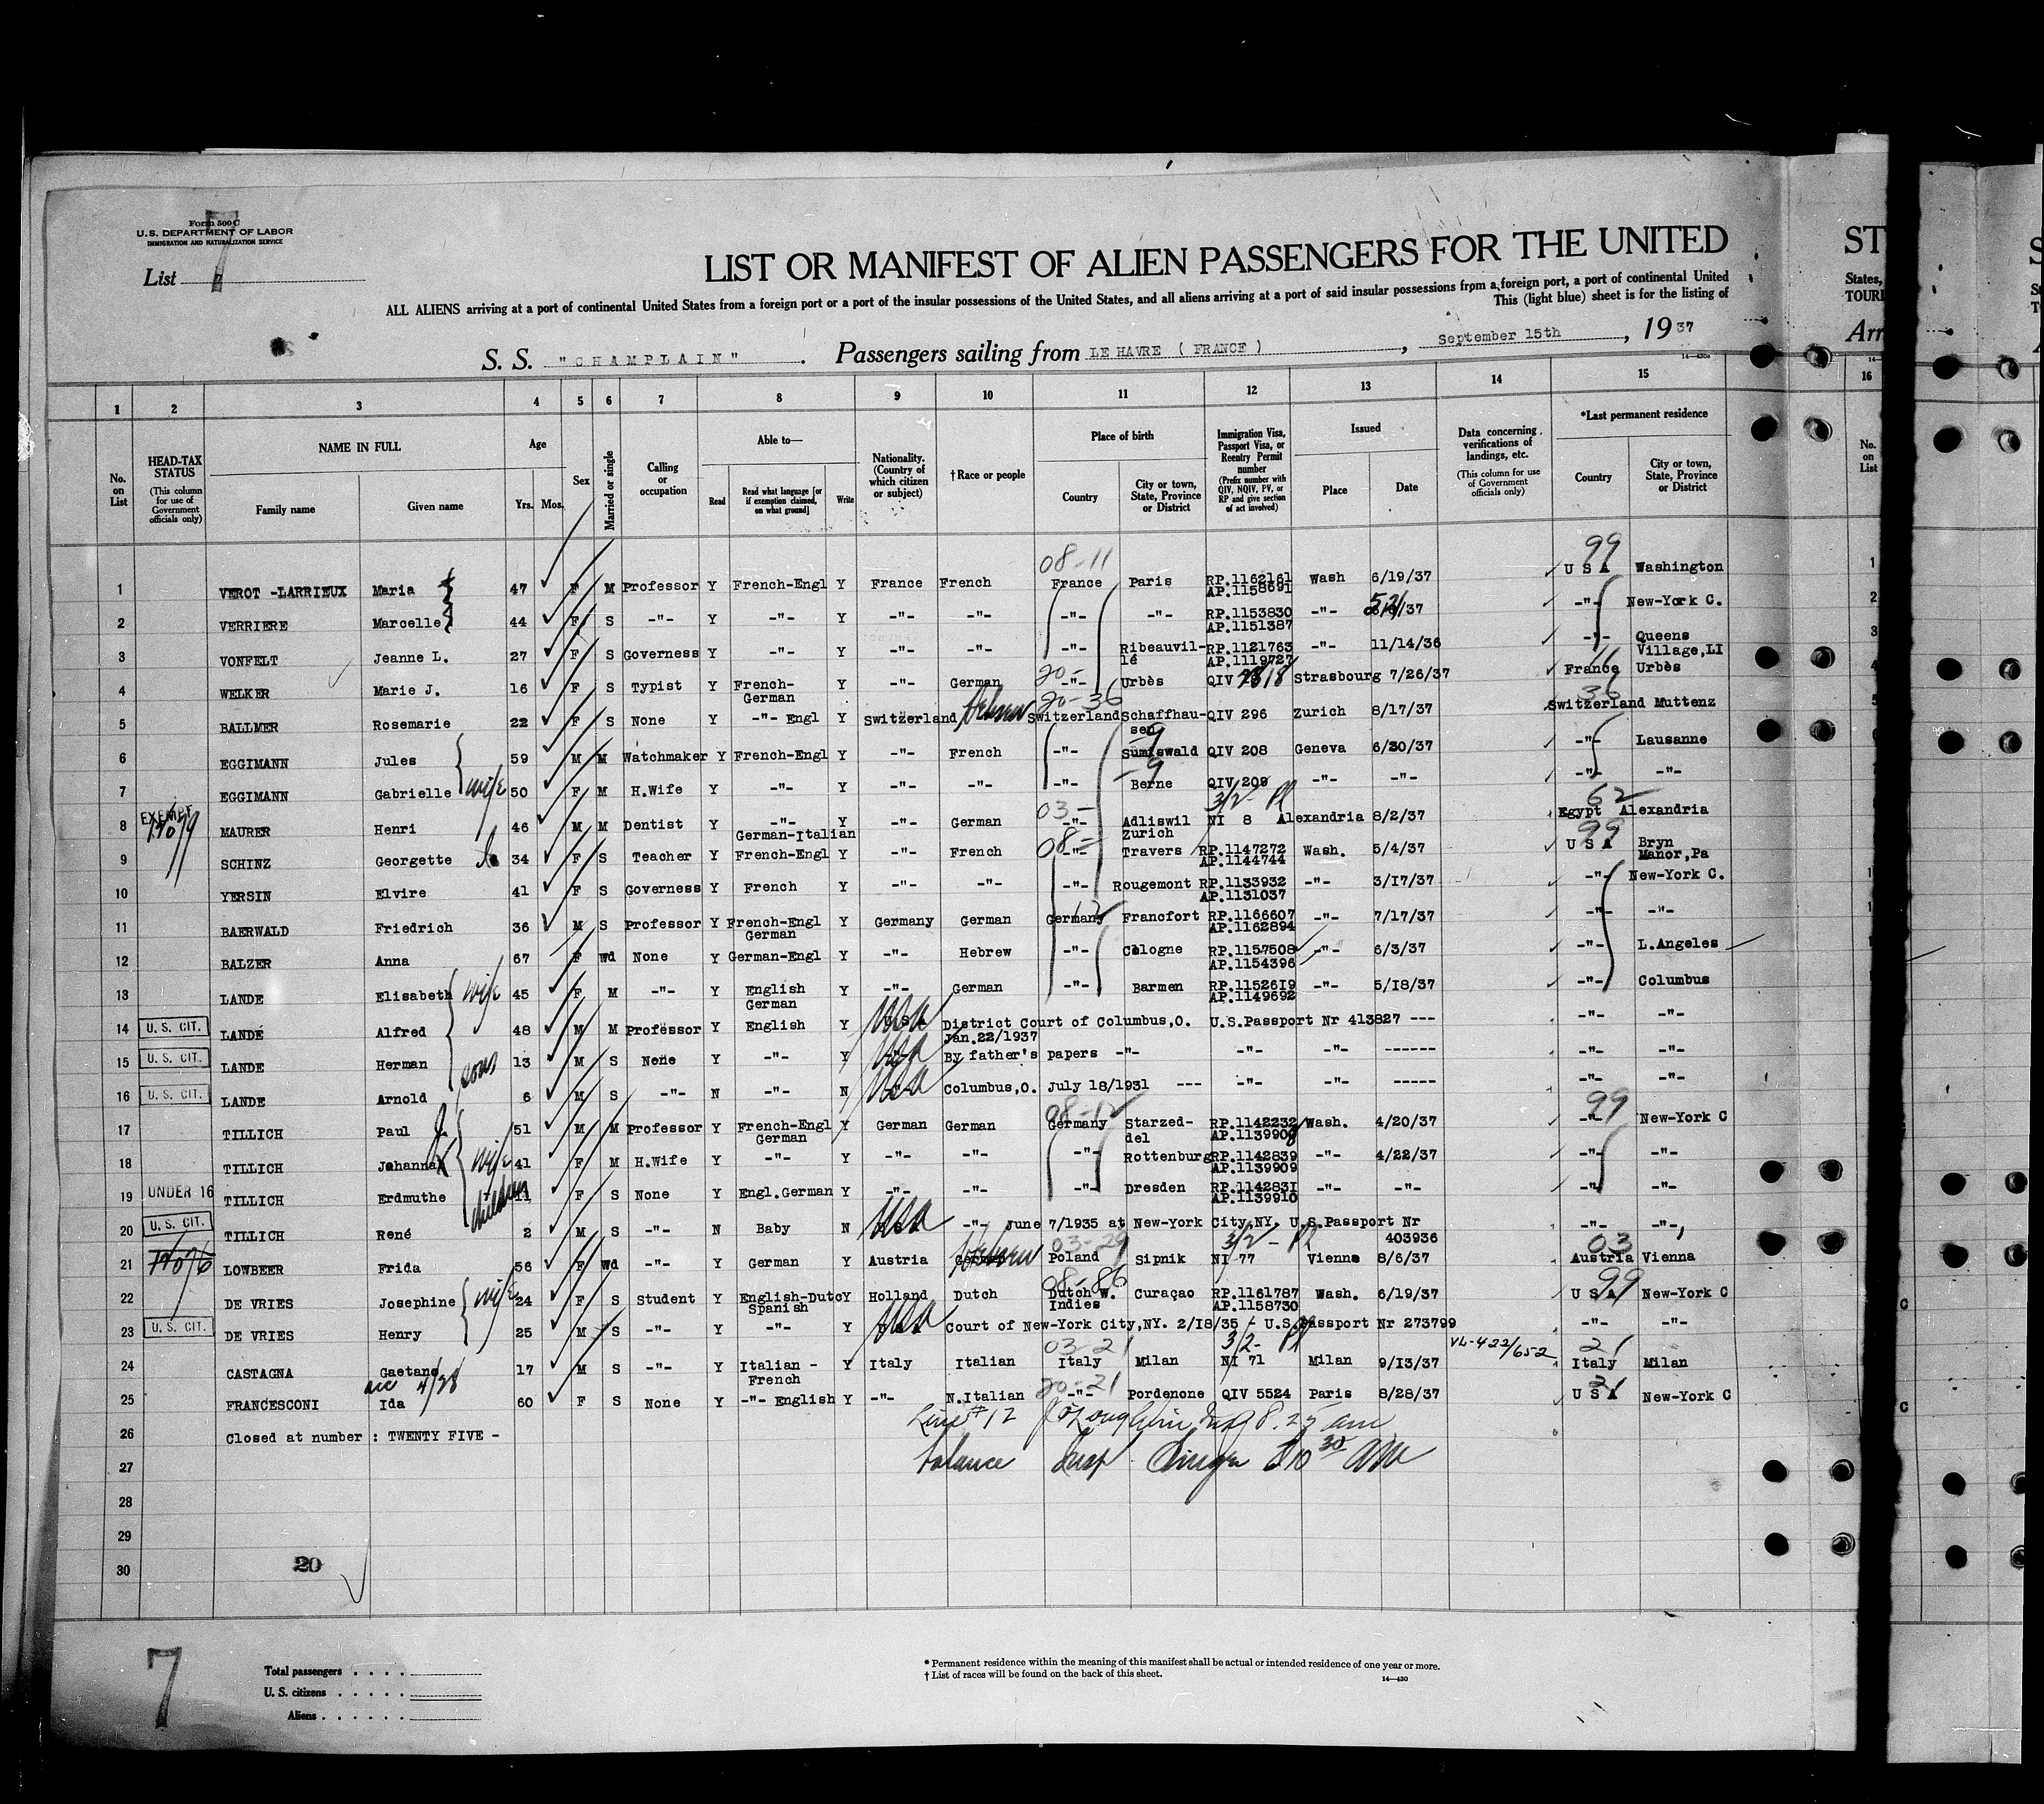 Form 500 C
U.S. DEPARTMENT OF LABOR
IMMIGRATION AND NATURALIZATION SERVICE
List 7
LIST OR MANIFEST OF ALIEN PASSENGERS FOR THE UNITED ST
ALL ALIENS arriving at a port of continental United States from a foreign port or a port of the insular possessions of the United States, and all aliens arriving at a port of said insular possessions from a foreign port, a port of continental United States,
This (light blue) sheet is for the listing of TOURI
S. S. "CHAMPLAIN". Passengers sailing from LE HAVRE ( FRANCE ), September 15th, 1937 Arr
14—430c
1 2 3 4 5 6 7 8 9 10 11 12 13 14 15 16
No. on List
HEAD-TAX STATUS (This column for use of Government officials only)
NAME IN FULL Family name Given name
Age Yrs. Mos.
Sex
Married or single
Calling or occupation
Able to— Read Read what language [or if exemption claimed, on what ground] Write
Nationality. (Country of which citizen or subject)
†Race or people
Place of birth Country City or town, State, Province or District
Immigration Visa, Passport Visa, or Reentry Permit number (Prefix number with QIV, NQIV, PV, or RP and give section of act involved)
Issued Place Date
Data concerning verifications of landings, etc. (This column for use of Government officials only)
*Last permanent residence Country City or town, State, Province or District
No. on List
08-11 99
1 VEROT -LARRIEUX Maria 47 F M Professor Y French-Engl Y France French France Paris RP.1162161 AP.1158691 Wash 6/19/37 U S A Washington
2 VERRIERE Marcelle 44 F S -"- Y -"- Y -"- -"- -"- -"- RP.1153830 AP.1151387 -"- /37 -"- New-York C.
3 VONFELT Jeanne L. 27 F S Governess Y -"- Y -"- -"- -"- Ribeauvil-lé RP.1121763 AP.1119727 -"- 11/14/36 -"- Queens Village,LI
4 WELKER Marie J. 16 F S Typist Y French-German Y -"- German 20- -"- Urbès QIV Strasbourg 7/26/37 France Urbès
5 BALLMER Rosemarie 22 F S None Y -"- Engl Y Switzerland Hebrew 20-36 Switzerland Schaffhau-sen QIV 296 Zurich 8/17/37 36 Switzerland Muttenz
6 EGGIMANN Jules 59 M M Watchmaker Y French-Engl Y -"- French -"- Sumiswald QIV 208 Geneva 6/30/37 -"- Lausanne
7 EGGIMANN Gabrielle wife 50 F M H.Wife Y -"- Y -"- -"- -"- Berne QIV 209 -"- -"- -"- -"-
8 EXEMPT MAURER Henri 46 M M Dentist Y -"- German-Italian Y -"- German 03- -"- Adliswil Zurich 3/2- Pl NI 8 Alexandria 8/2/37 62 Egypt Alexandria
9 SCHINZ Georgette 34 F S Teacher Y French-Engl Y -"- French 08- -"- Travers RP.1147272 AP.1144744 Wash. 5/4/37 99 U S A Bryn Manor,Pa
10 YERSIN Elvire 41 F S Governess Y French Y -"- -"- -"- Rougemont RP.1133932 AP.1131037 -"- 3/17/37 -"- New-York C.
11 BAERWALD Friedrich 36 M S Professor Y French-Engl German Y Germany German Germany 12 Francfort RP.1166607 AP.1162894 -"- 7/17/37 -"- -"-
12 BALZER Anna 67 F Wd None Y German-Engl Y -"- Hebrew -"- Cologne RP.1157508 AP.1154396 -"- 6/3/37 -"- L.Angeles
13 LANDE Elisabeth wife 45 F M -"- Y English German Y -"- German -"- Barmen RP.1152619 AP.1149692 -"- 5/18/37 -"- Columbus
14 U. S. CIT. LANDÉ Alfred 48 M M Professor Y English Y USA District Court of Columbus,O. Jan.22/1937 U.S.Passport Nr 413827 --- -"- -"-
15 U. S. CIT. LANDE Herman sons 13 M S None Y -"- Y USA By father's papers -"- -"- -"- ------ -"- -"-
16 U. S. CIT. LANDE Arnold 6 M S -"- N -"- N USA Columbus,O. July 18/1931 --- -"- -"- ----- -"- -"-
17 TILLICH Paul J. 51 M M Professor Y French-Engl German Y German German 08-12 Germany Starzed-del RP.1142232 AP.1139908 Wash. 4/20/37 99 -"- New-York C
18 TILLICH Johanna wife 41 F M H.Wife Y -"- Y -"- -"- -"- Rottenburg RP.1142839 AP.1139909 -"- 4/22/37 -"- -"-
19 UNDER 16 TILLICH Erdmuthe children 11 F S None Y Engl.German Y -"- -"- -"- Dresden RP.1142831 AP.1139910 -"- -"- -"- -"-
20 U. S. CIT. TILLICH René 2 M S -"- N Baby N USA -"- June 7/1935 at New-York City,NY. U.S.Passport Nr 403936 -"- -"-
21 LOWBEER Frida 56 F Wd -"- Y German Y Austria Hebrew 03-29 Poland Sipnik 3/2 - Pl NI 77 Vienna 8/6/37 03 Austria Vienna
22 DE VRIES Josephine wife 24 F S Student Y English-Dutc Spanish Y Holland Dutch 08-86 Dutch W. Indies Curaçao RP.1161787 AP.1158730 Wash. 6/19/37 99 U S A New-York C
23 U. S. CIT. DE VRIES Henry 25 M S -"- Y -"- Y USA Court of New-York City,NY. 2/18/35 - U.S.Passport Nr 273799 -"- -"-
24 CASTAGNA Gaetano 17 M S -"- Y Italian - French Y Italy Italian 03-21 Italy Milan 3/2- Pl NI 71 Milan 9/13/37 VL-422/652 21 Italy Milan
25 FRANCESCONI Ida 60 F S None Y -"- English Y -"- N.Italian 20-21 -"- Pordenone QIV 5524 Paris 8/28/37 21 U S A New-York C
26 Closed at number : TWENTY FIVE -
Line # 12 8.25 am
27 balance Insp 10 30 AM
28
29
30 20
7
Total passengers . . . .
U. S. citizens . . . . .
Aliens . . . . . .
* Permanent residence within the meaning of this manifest shall be actual or intended residence of one year or more.
† List of races will be found on the back of this sheet.
14—430